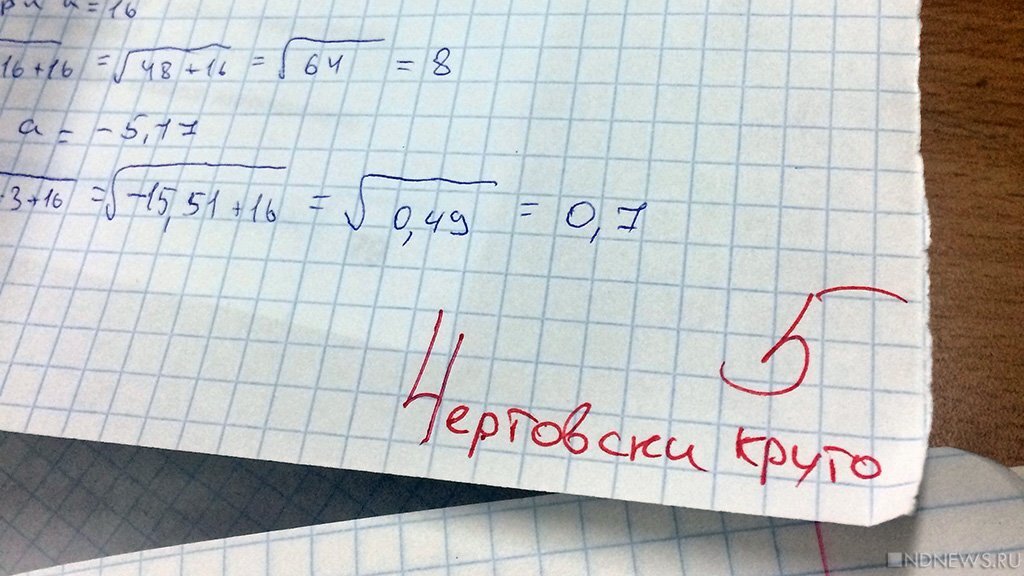 = 16
16+16 = √48+16 = √64 = 8
a = -5,17
3+16 = √-15,51+16 = √0,49 = 0,7
5
Чертовски круто
NDNEWS.RU